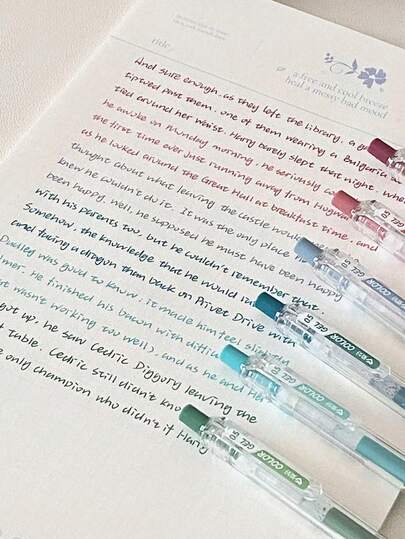 title
a free and cool breeze
heal a messy bad mood
And sure enough, as they left the library, a g
tiptoed past them, one of them wearing a Bulgaria
tied around her waist. Harry barely slept that night. Whe
he awoke on Monday morning, he seriously
the first time ever just running away from Hogwa
as he looked around the Great Hall at breakfast time, and
thought about what leaving the castle would
knew he couldn't do it. It was the only place
been happy. Well, he supposed he must have been happy
with his parents too, but he couldn't remember that.
Somehow, the knowledge that he would
and facing a dragon than back on Privet Drive with
Dudley was good to know; it made him feel slightly
lmer. He finished his bacon with diffic
t wasn't working too well), and as he and Her
got up, he saw Cedric Diggory leaving the
Table. Cedric still didn't kno
e only champion who didn't if Harry
GEL COLOR
GEL COLOR
GEL COLOR
GEL COLOR